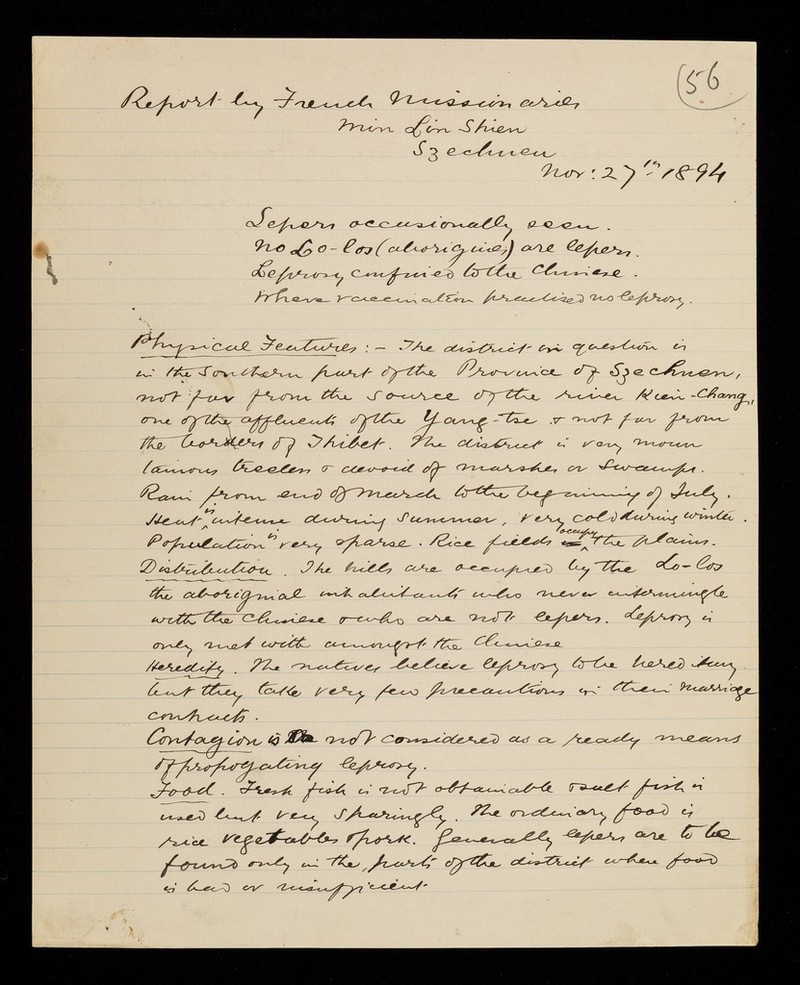 56
Report by French Missionaries
Min Lin Shien
Szechuen
Nov: 27th 1894
Lepers occasionally seen.
No Lo-los (aborigines) are lepers.
Leprosy confined to the Chinese.
Where vaccination practised no leprosy.
Physical Features :- The district in question is
in the Southern part of the Province of Szechuen,
not far from the source of the river Kien-Chang,
one of the affluents of the Yang-tse & not far from
the borders of Thibet. The district is very moun
tainous treeless & devoid of marshes or swamps.
Rain from end of March to the beginning of July.
Heat is intense during summer, very cold during winter.
Population is very sparse. Rice fields occupy the plains.
Distribution. The hills are occupied by the Lo-los
the aboriginal inhabitants who never intermingle
with the Chinese & who are not lepers. Leprosy is
only met with amongst the Chinese
Heredity. The natives believe leprosy to be hereditary
but they take very few precautions in their marriage
contracts.
Contagion is not considered as a ready means
of propogating leprosy.
Food. Fresh fish is not obtainable & salt fish is
used but very sparingly. The ordinary food is
rice vegetables & pork. Generally lepers are to be
found only in the parts of the district where food
is bad or insufficient